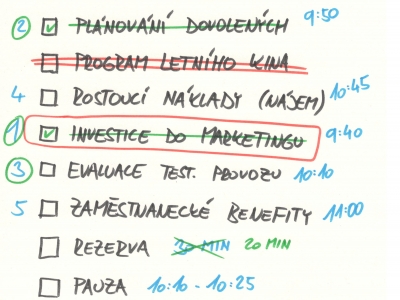 2 PLÁNOVÁNÍ DOVOLENÝCH 9:50
PROGRAM LETNÍHO KINA
4 ROSTOUCÍ NÁKLADY (NÁJEM) 10:45
1 INVESTICE DO MARKETINGU 9:40
3 EVALUACE TEST. PROVOZU 10:10
5 ZAMĚSTNANECKÉ BENEFITY 11:00
REZERVA 30 MIN 20 MIN
PAUZA 10:10 - 10:25